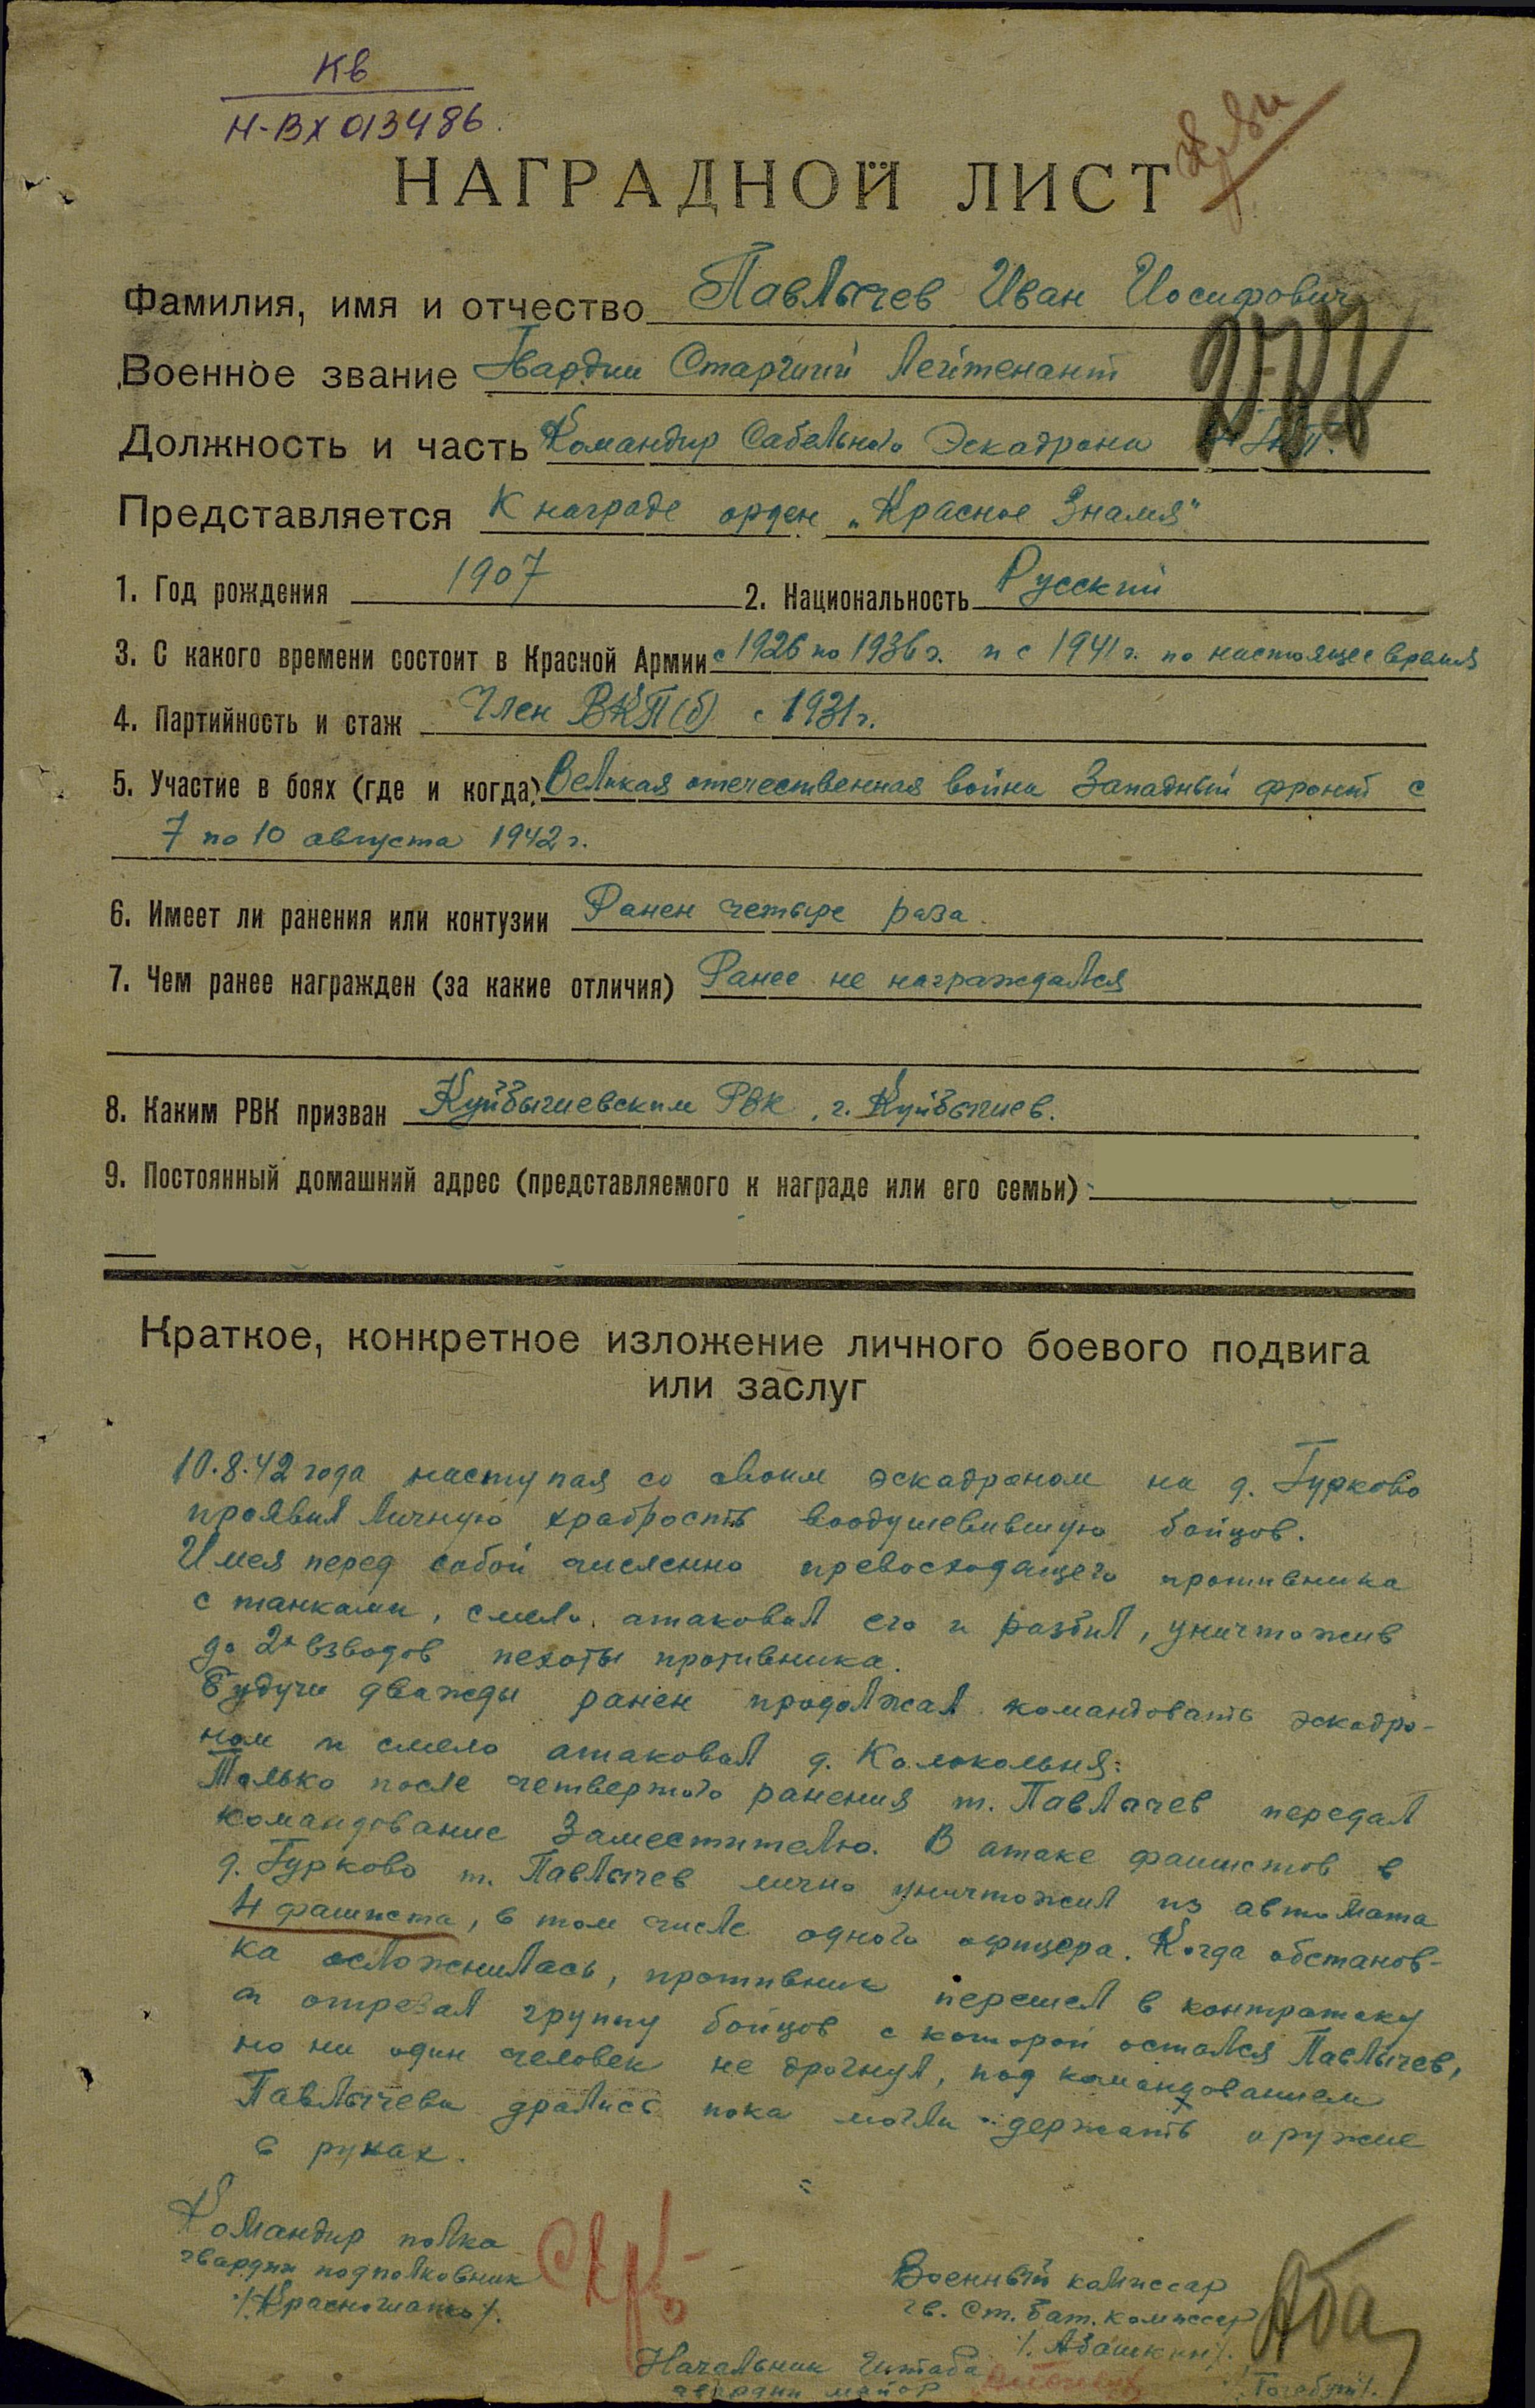 Кв
Н-ВХ 013486.
НАГРАДНОЙ ЛИСТ
Фамилия, имя и отчество Павлычев Иван Иосифович
Военное звание Гвардии Старший Лейтенант
Должность и часть Командир Сабельного Эскадрона
Представляется К награде орден „Красное Знамя"
1. Год рождения 1907 2. Национальность Русский
3. С какого времени состоит в Красной Армии с 1926 по 1936 г. и с 1941 г. по настоящее время
4. Партийность и стаж Член ВКП(б) с 1931 г.
5. Участие в боях (где и когда) Великая отечественная война Западный фронт с
7 по 10 августа 1942 г.
6. Имеет ли ранения или контузии Ранен четыре раза.
7. Чем ранее награжден (за какие отличия) Ранее не награждался
8. Каким РВК призван Куйбышевским РВК, г. Куйбышев.
9. Постоянный домашний адрес (представляемого к награде или его семьи)
Краткое, конкретное изложение личного боевого подвига
или заслуг
10.8.42 года наступая со своим эскадроном на д. Гурково
проявил личную храбрость воодушевившую бойцов.
Имея перед собой численно превосходящего противника
с танками, смело атаковал его и разбил, уничтожив
до 2х взводов пехоты противника.
Будучи дважды ранен продолжал командовать эскадро-
ном и смело атаковал д. Колокольня.
Только после четвертого ранения т. Павлычев передал
командование Заместителю. В атаке фашистов в
д. Гурково т. Павлычев лично уничтожил из автомата
4 фашиста, в том числе одного офицера. Когда обстанов-
ка осложнилась, противник перешел в контратаку
и отрезал группу бойцов с которой остался Павлычев,
но ни один человек не дрогнул, под командованием
Павлычева дрались пока могли держать оружие
в руках.
Командир полка
гвардии подполковник
/Красношапко/.
Военный комиссар
гв. Ст. бат. комиссар
/. Абашкин/.
Начальник Штаба
гвардии майор